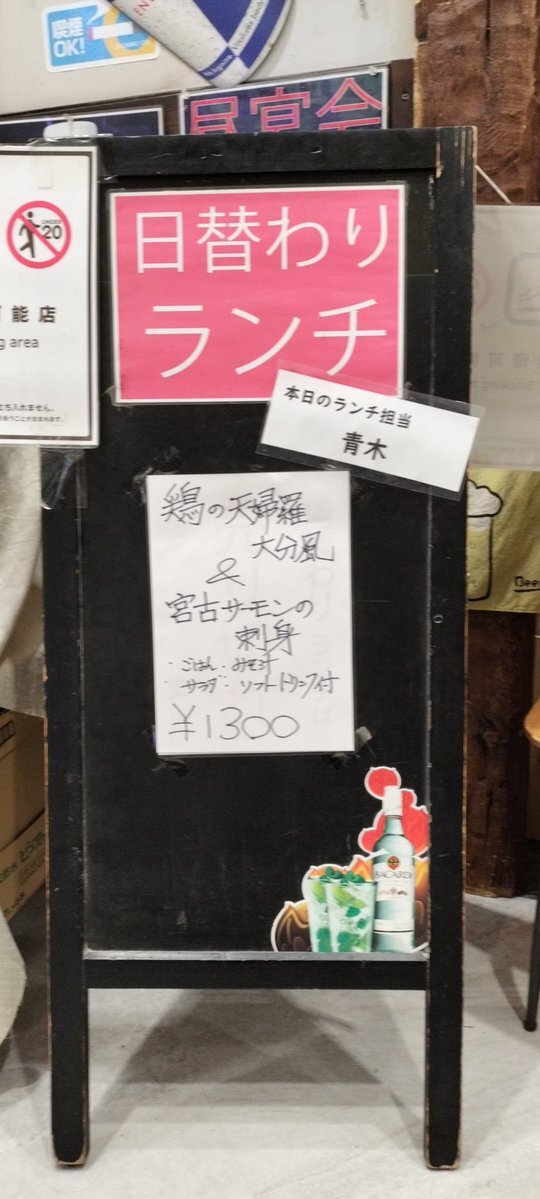 喫煙
OK!
昼宴会
UNDER
20
能店
g area
ち入れません。
日替わり
ランチ
本日のランチ担当
青木
鶏の天婦羅
大分風
&
宮古サーモンの
刺身
・ごはん・みそ汁
・サラダ・ソフトドリンク付
¥1300
BACARDI
Beer